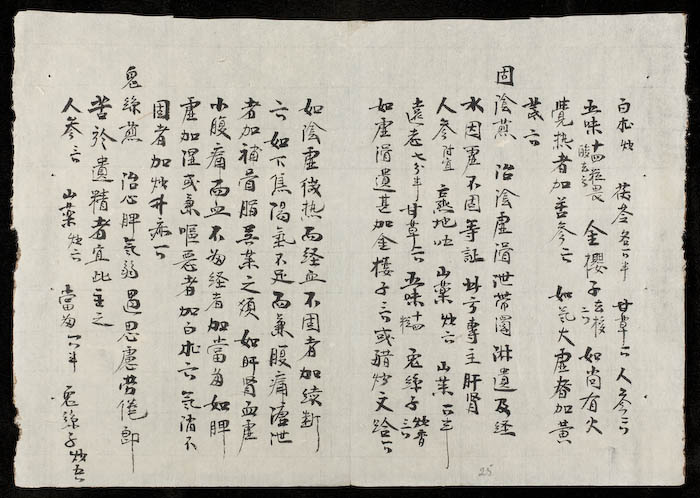 白朮炒 茯苓各一半 甘草一 人參三
五味十四粒畏酸去之 金櫻子去核二 如尚有火
覺熱者加苦參一 如氣大虛者加黃
芪二
固陰煎 治陰虛滑泄帶濁淋遺及経
水因虛不固等証 此方專主肝腎
人參隨宜 熟地 山藥炒二 山茱一半
遠志七分半 甘草二 五味十四粒 兔絲子炒香三
如虛滑遺甚加金櫻子三 或醋炒文蛤一
如陰虛微熱而経血不固者加續斷
二 如下焦陽氣不足而兼腹痛溏泄
者加補骨脂吳茱之須 如肝腎血虛
小腹痛而血不歸経者加當歸 如脾
虛加濕或兼嘔惡者加白朮二 氣陷不
固者加炒升麻一
兔絲煎 治心脾氣弱遇思慮勞倦即
苦於遺精者宜此主之
人參三 山藥炒二 當歸一半 兔絲子炒五
25